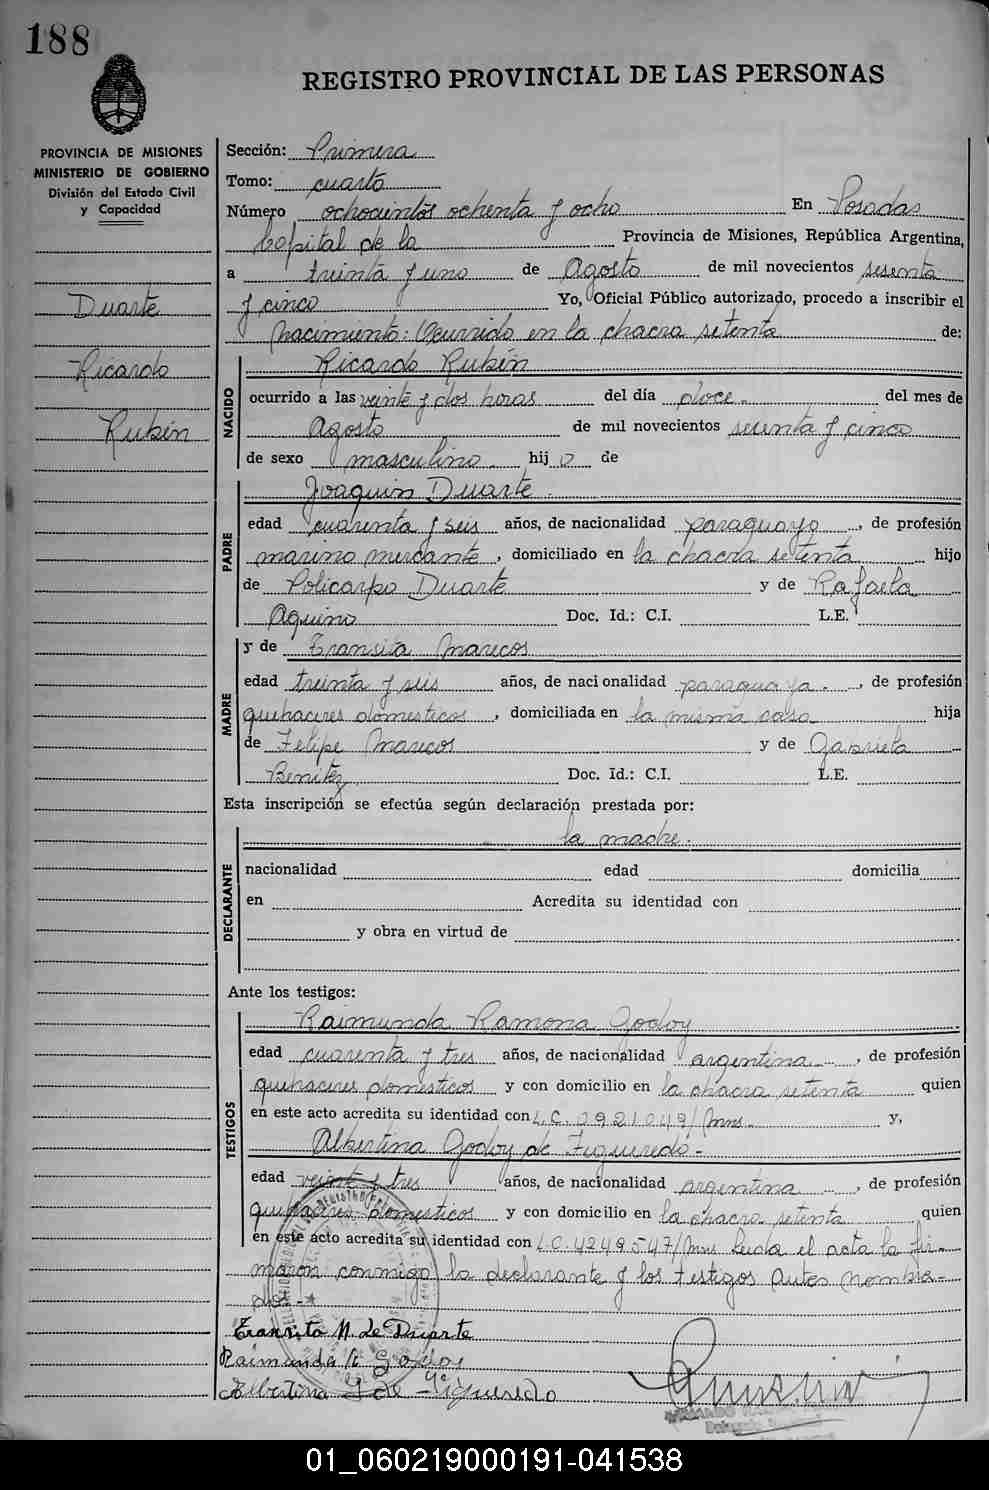 188
REGISTRO PROVINCIAL DE LAS PERSONAS
PROVINCIA DE MISIONES
MINISTERIO DE GOBIERNO
División del Estado Civil
y Capacidad
Duarte
Ricardo
Rubén
Sección: Primera
Tomo: cuarto
Número ochocientos ochenta y ocho En Posadas
Capital de la Provincia de Misiones, República Argentina,
a treinta y uno de Agosto de mil novecientos sesenta
y cinco Yo, Oficial Público autorizado, procedo a inscribir el
nacimiento: Ocurrido en la chacra setenta de:
NACIDO
Ricardo Rubén
ocurrido a las veinte y dos horas del día doce.- del mes de
Agosto de mil novecientos sesenta y cinco
de sexo masculino.- hijo de
PADRE
Joaquin Duarte.
edad cuarenta y seis años, de nacionalidad paraguayo, de profesión
marino mercante, domiciliado en la chacra setenta hijo
de Policarpo Duarte y de Rafaela
Aquino Doc. Id.: C.I. L.E.
MADRE
y de Transita Marecos
edad treinta y seis años, de nacionalidad paraguaya.-, de profesión
quehaceres domesticos, domiciliada en la misma casa hija
de Felipe Marecos y de Gabriela
Benitez Doc. Id.: C.I. L.E.
Esta inscripción se efectúa según declaración prestada por:
DECLARANTE
la madre.
nacionalidad edad domicilia
en Acredita su identidad con
y obra en virtud de
Ante los testigos:
TESTIGOS
Raimunda Ramona Godoy
edad cuarenta y tres años, de nacionalidad argentina, de profesión
quehaceres domesticos y con domicilio en la chacra setenta quien
en este acto acredita su identidad con L.C. 0921049/Mns. y,
Albertina Godoy de Figueredo.-
edad veinte y tres años, de nacionalidad argentina, de profesión
quehaceres domesticos y con domicilio en la chacra setenta quien
en este acto acredita su identidad con L.C. 4249547/Mns Leida el acta la fir-
maron conmigo la declarante y los testigos antes nombra-
dos.-
Transita M. de Duarte
Raimunda R Godoy
Albertina G de Figueredo
01_060219000191-041538